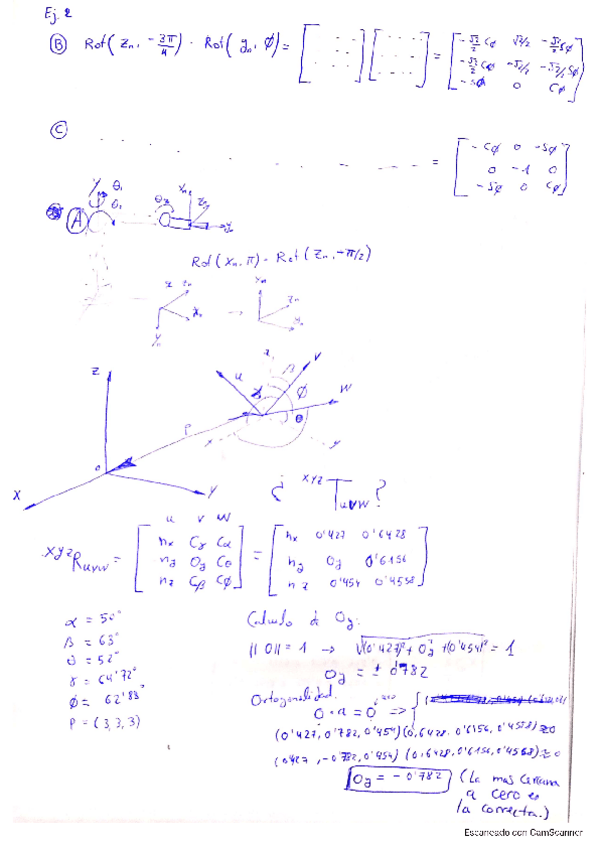 Ej. 2
(B) Rot(zn, -3π/4) · Rot(yn, φ) = [ ] [ ] = [ -√2/2 Cφ √2/2 -√2/2 Sφ
-√2/2 Cφ -√2/2 -√2/2 Sφ
-Sφ 0 Cφ ]
(C) . . . . . . . = [ -Cφ 0 -Sφ
0 -1 0
-Sφ 0 Cφ ]
θ1
θ1
(A)
xn
zn
Rot(xn, π) - Rot(zn, -π/2)
zn
xn
zn
yn
z
u
β
v
φ
w
θ
P
x
y
o
x
y
¿ xyz Tuvw?
u v w
xyz Ruvw = [ nx Cγ Cα
ny Oy Cθ
nz Cβ Cφ ] = [ nx 0'427 0'6428
ny Oy 0'6156
nz 0'454 0'4558 ]
α = 50°
β = 63°
θ = 52°
γ = 64'72°
φ = 62'88°
P = (3,3,3)
Calculo de Oy:
||O|| = 1 → √(0'427)² + Oy² + (0'454)² = 1
Oy = ± 0'782
Ortogonalidad.
O · a = 0 ⇒
(0'427, 0'782, 0'454) (0,6428, 0'6156, 0'4558) ≈ 0
(0'427, -0'782, 0'454) (0,6428, 0'6156, 0'4568) ≈ 0
Oy = -0'782
(La mas cercana
a cero es
la correcta.)
Escaneado con CamScanner